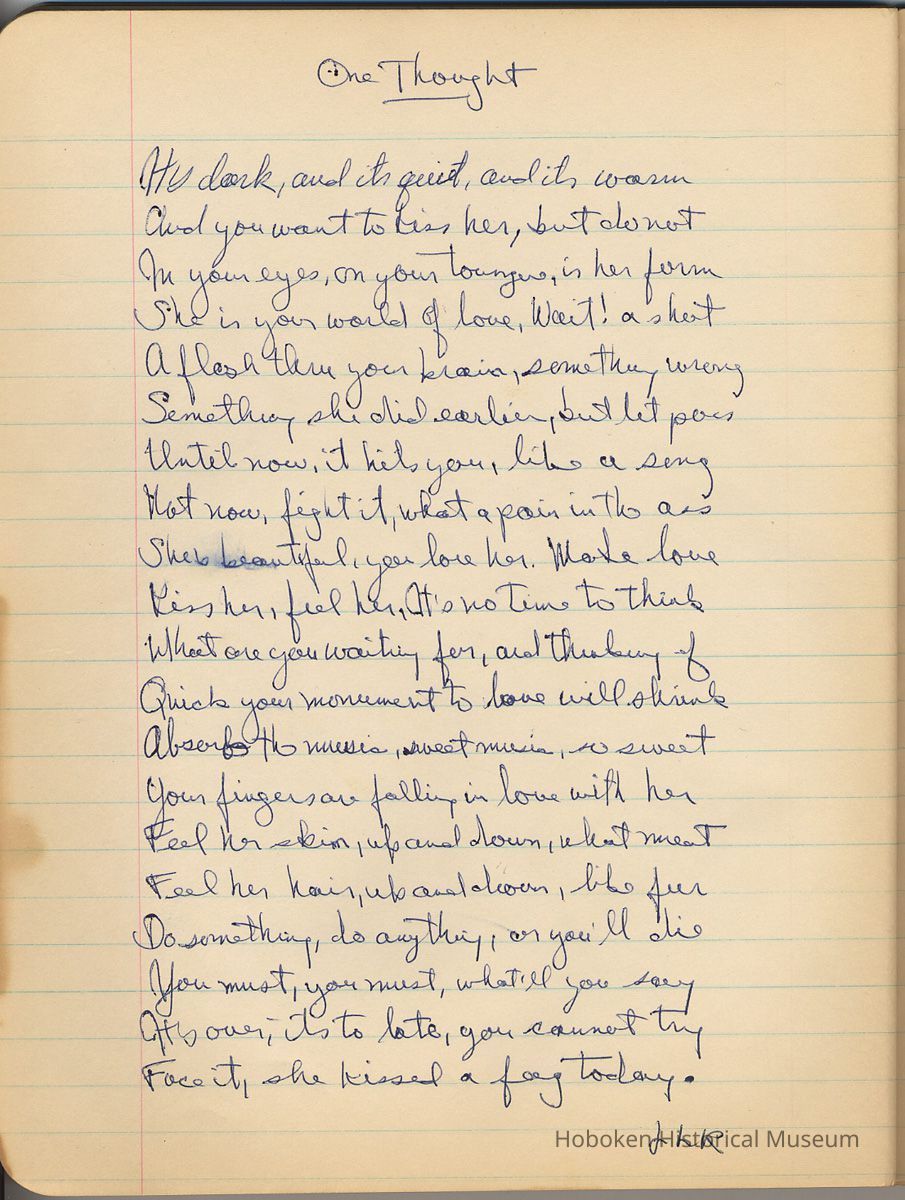 One Thought
Its dark, and its quiet, and its warm
And you want to kiss her, but do not
In your eyes, on your toungue, is her form
She is your world of love, Wait! a shot
A flash thru your brain, something wrong
Something she did earlier, but let pass
Until now, it hits you, like a song
Not now, fight it, what a pain in the ass
She's beautiful, you love her. Make love
Kiss her, feel her, It's no time to think
What are you waiting for, and thinking of
Quick your monument to love will shrink
Absorb the music, sweet music, so sweet
Your fingers are falling in love with her
Feel her skin, up and down, what meat
Feel her hair, up and down, like fur
Do something, do anything, or you'll die
You must, you must, what'll you say
It's over, its to late, you cannot try
Face it, she kissed a fag today.
Hoboken Historical Museum